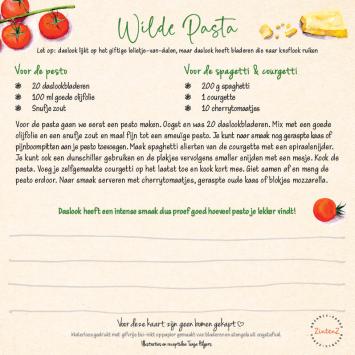 Wilde Pasta
Let op: daslook lijkt op het giftige lelietje-van-dalen, maar daslook heeft bladeren die naar knoflook ruiken
Voor de pesto
20 daslookbladeren
100 ml goede olijfolie
Snufje zout
Voor de spagetti & courgetti
200 g spaghetti
1 courgette
10 cherrytomaatjes
Voor de pasta gaan we eerst een pesto maken. Oogst en was 20 daslookbladeren. Mix met een goede
olijfolie en een snufje zout en maal fijn tot een smeuïge pesto. Je kunt naar smaak nog geraspte kaas of
pijnboompitten aan je pesto toevoegen. Maak spaghetti slierten van de courgette met een spiraalsnijder.
Je kunt ook een dunschiller gebruiken en de plakjes vervolgens smaller snijden met een mesje. Kook de
pasta. Voeg je zelfgemaakte courgetti op het laatst toe en kook kort mee. Giet samen af en meng de
pesto erdoor. Naar smaak serveren met cherrytomaatjes, geraspte oude kaas of blokjes mozzarella.
Daslook heeft een intense smaak dus proef goed hoeveel pesto je lekker vindt!
Voor deze kaart zijn geen bomen gekapt
Waterloos gedrukt met gifvrije bio-inkt op papier gemaakt van bladeren en stengels uit oogstafval.
Illustraties en receptidee Tanja Hilgers
ZintenZ